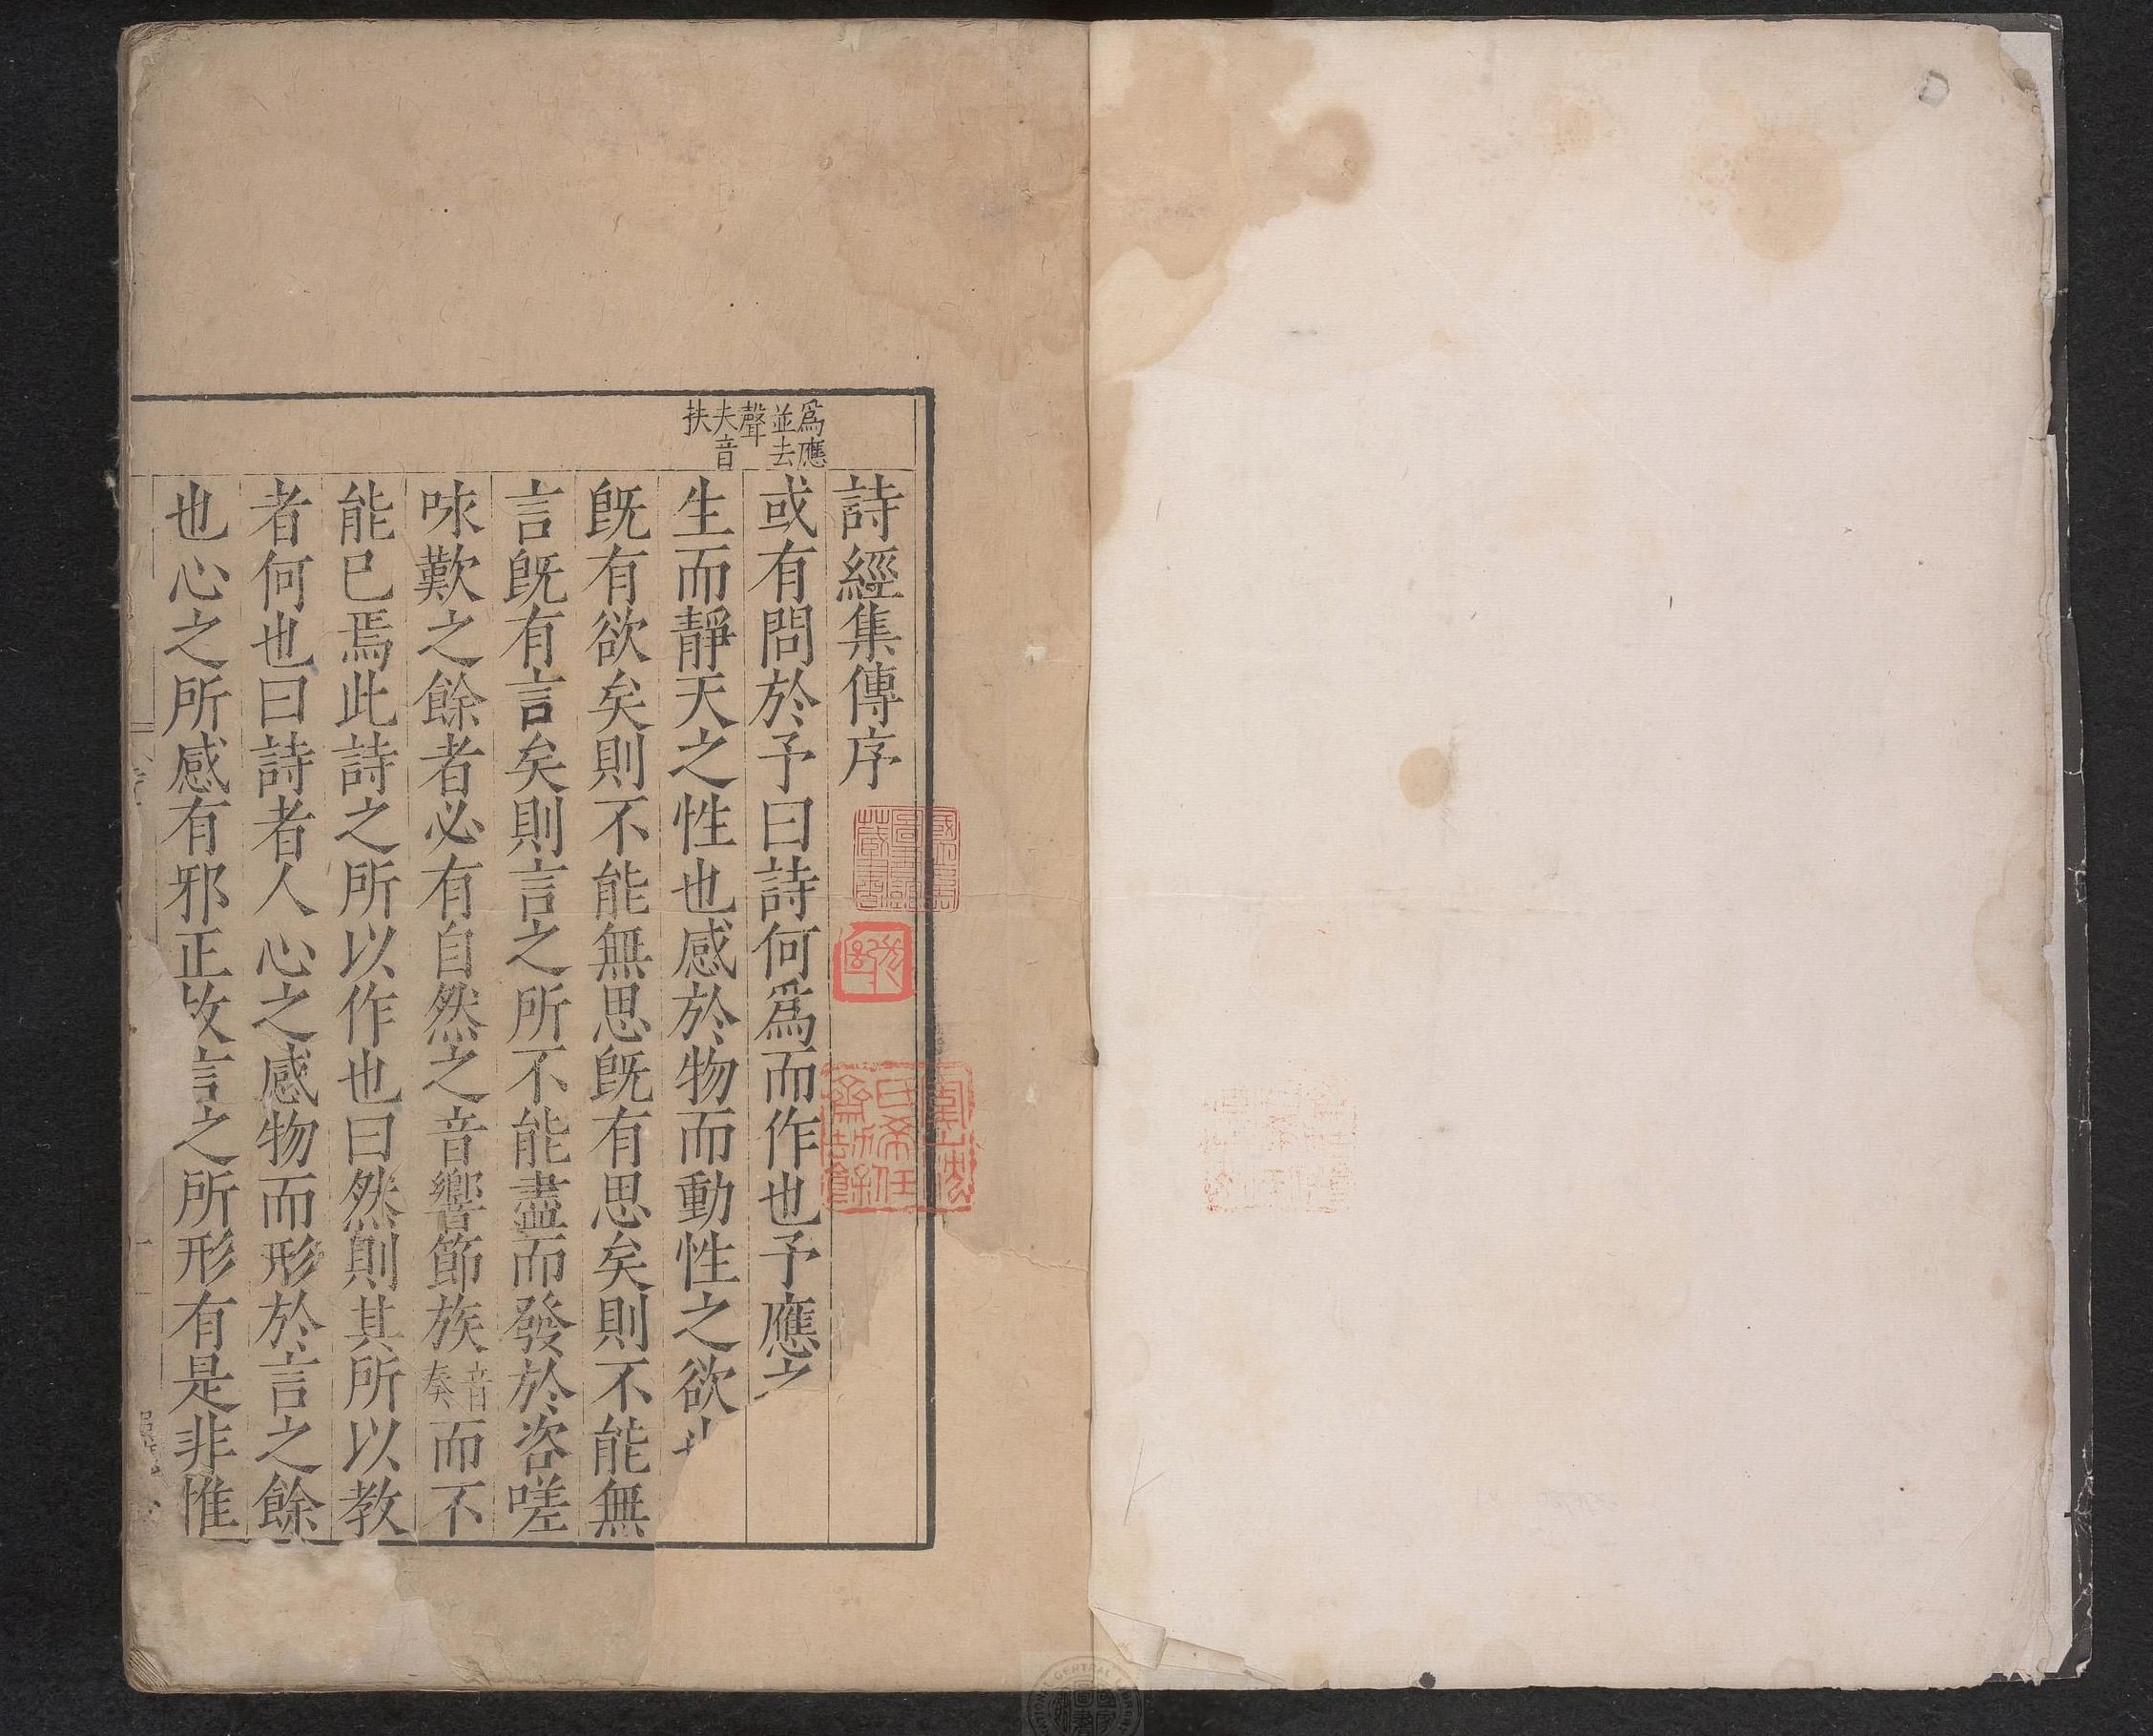 爲應
並去
聲
夫音
扶
詩經集傳序
或有問於予曰詩何爲而作也予應之
生而靜天之性也感於物而動性之欲也
旣有欲矣則不能無思旣有思矣則不能無
言旣有言矣則言之所不能盡而發於咨嗟
咏歎之餘者必有自然之音響節族音奏而不
能已焉此詩之所以作也曰然則其所以教
者何也曰詩者人心之感物而形於言之餘
也心之所感有邪正故言之所形有是非惟
國立中央圖書館藏書